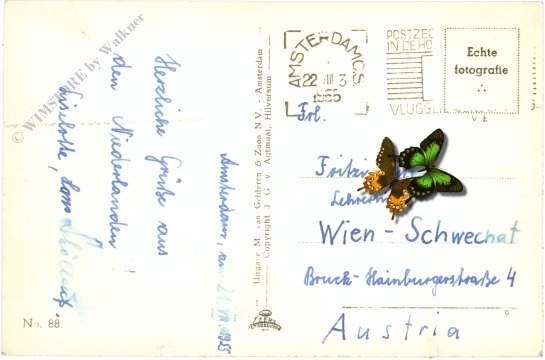 © WIMSTORE by Walkner
Herzliche Grüße aus
den Niederlanden!
Liselotte,
Amsterdam, am 21.VII.1955
No. 88.
Uitgave M. van Gelderen & Zoon N.V. - Amsterdam
Copyright J. G. v. Agtmaal, Hilversum
AMSTERDAM CS
22 VII 3
1955
POSTZEG
IN DE HO
VLUGG
Echte
fotografie
Frl.
Wien - Schwechat
Bruck-Hainburgerstraße 4
Austria